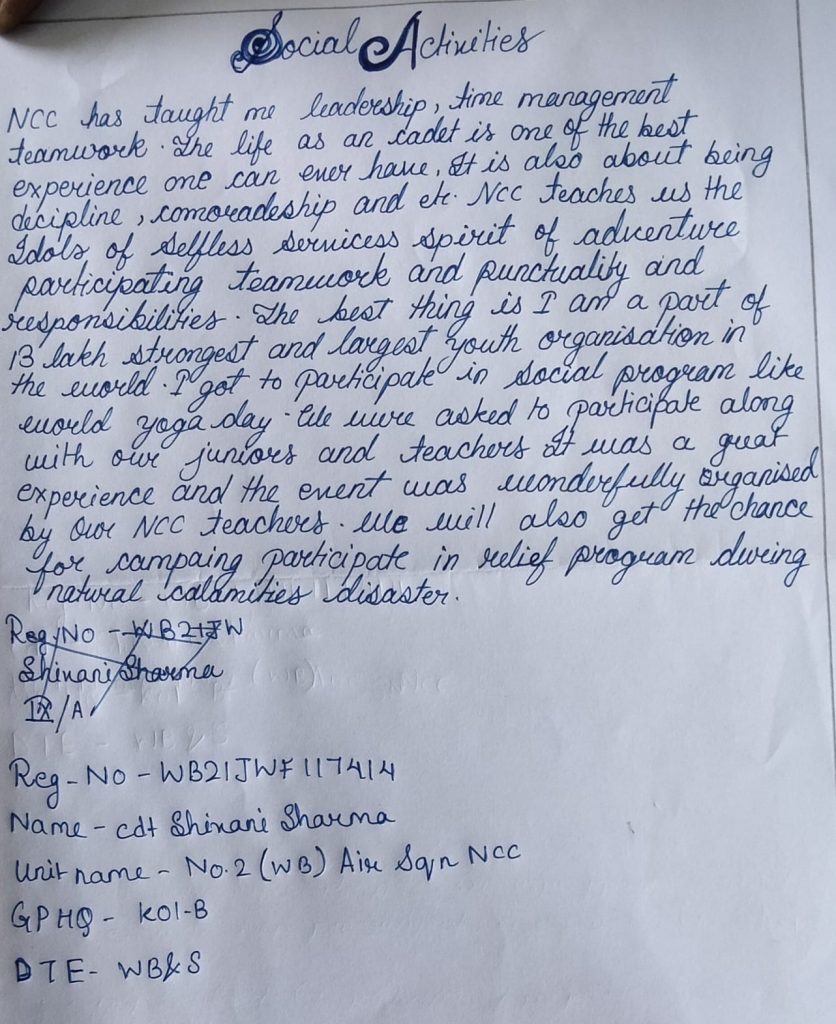 Social Activities
NCC has taught me leadership, time management
teamwork. The life as an cadet is one of the best
experience one can ever have, It is also about being
decipline, comoradeship and etc. NCC teaches us the
Idols of selfless servicess spirit of adventure
participating teamwork and punctuality and
responsibilities. The best thing is I am a part of
13 lakh strongest and largest youth organisation in
the world. I got to participate in social program like
world yoga day. We were asked to participate along
with our juniors and teachers It was a great
experience and the event was wonderfully organised
by our NCC teachers. We will also get the chance
for campaing participate in relief program during
natural calamities disaster.
Reg No - WB21JW
Shivani Sharma
IX/A
Reg - No - WB21JWF117414
Name - cdt Shivani Sharma
Unit name - No. 2 (WB) Air Sqn NCC
GPHQ - KOl-B
DTE - WB&S